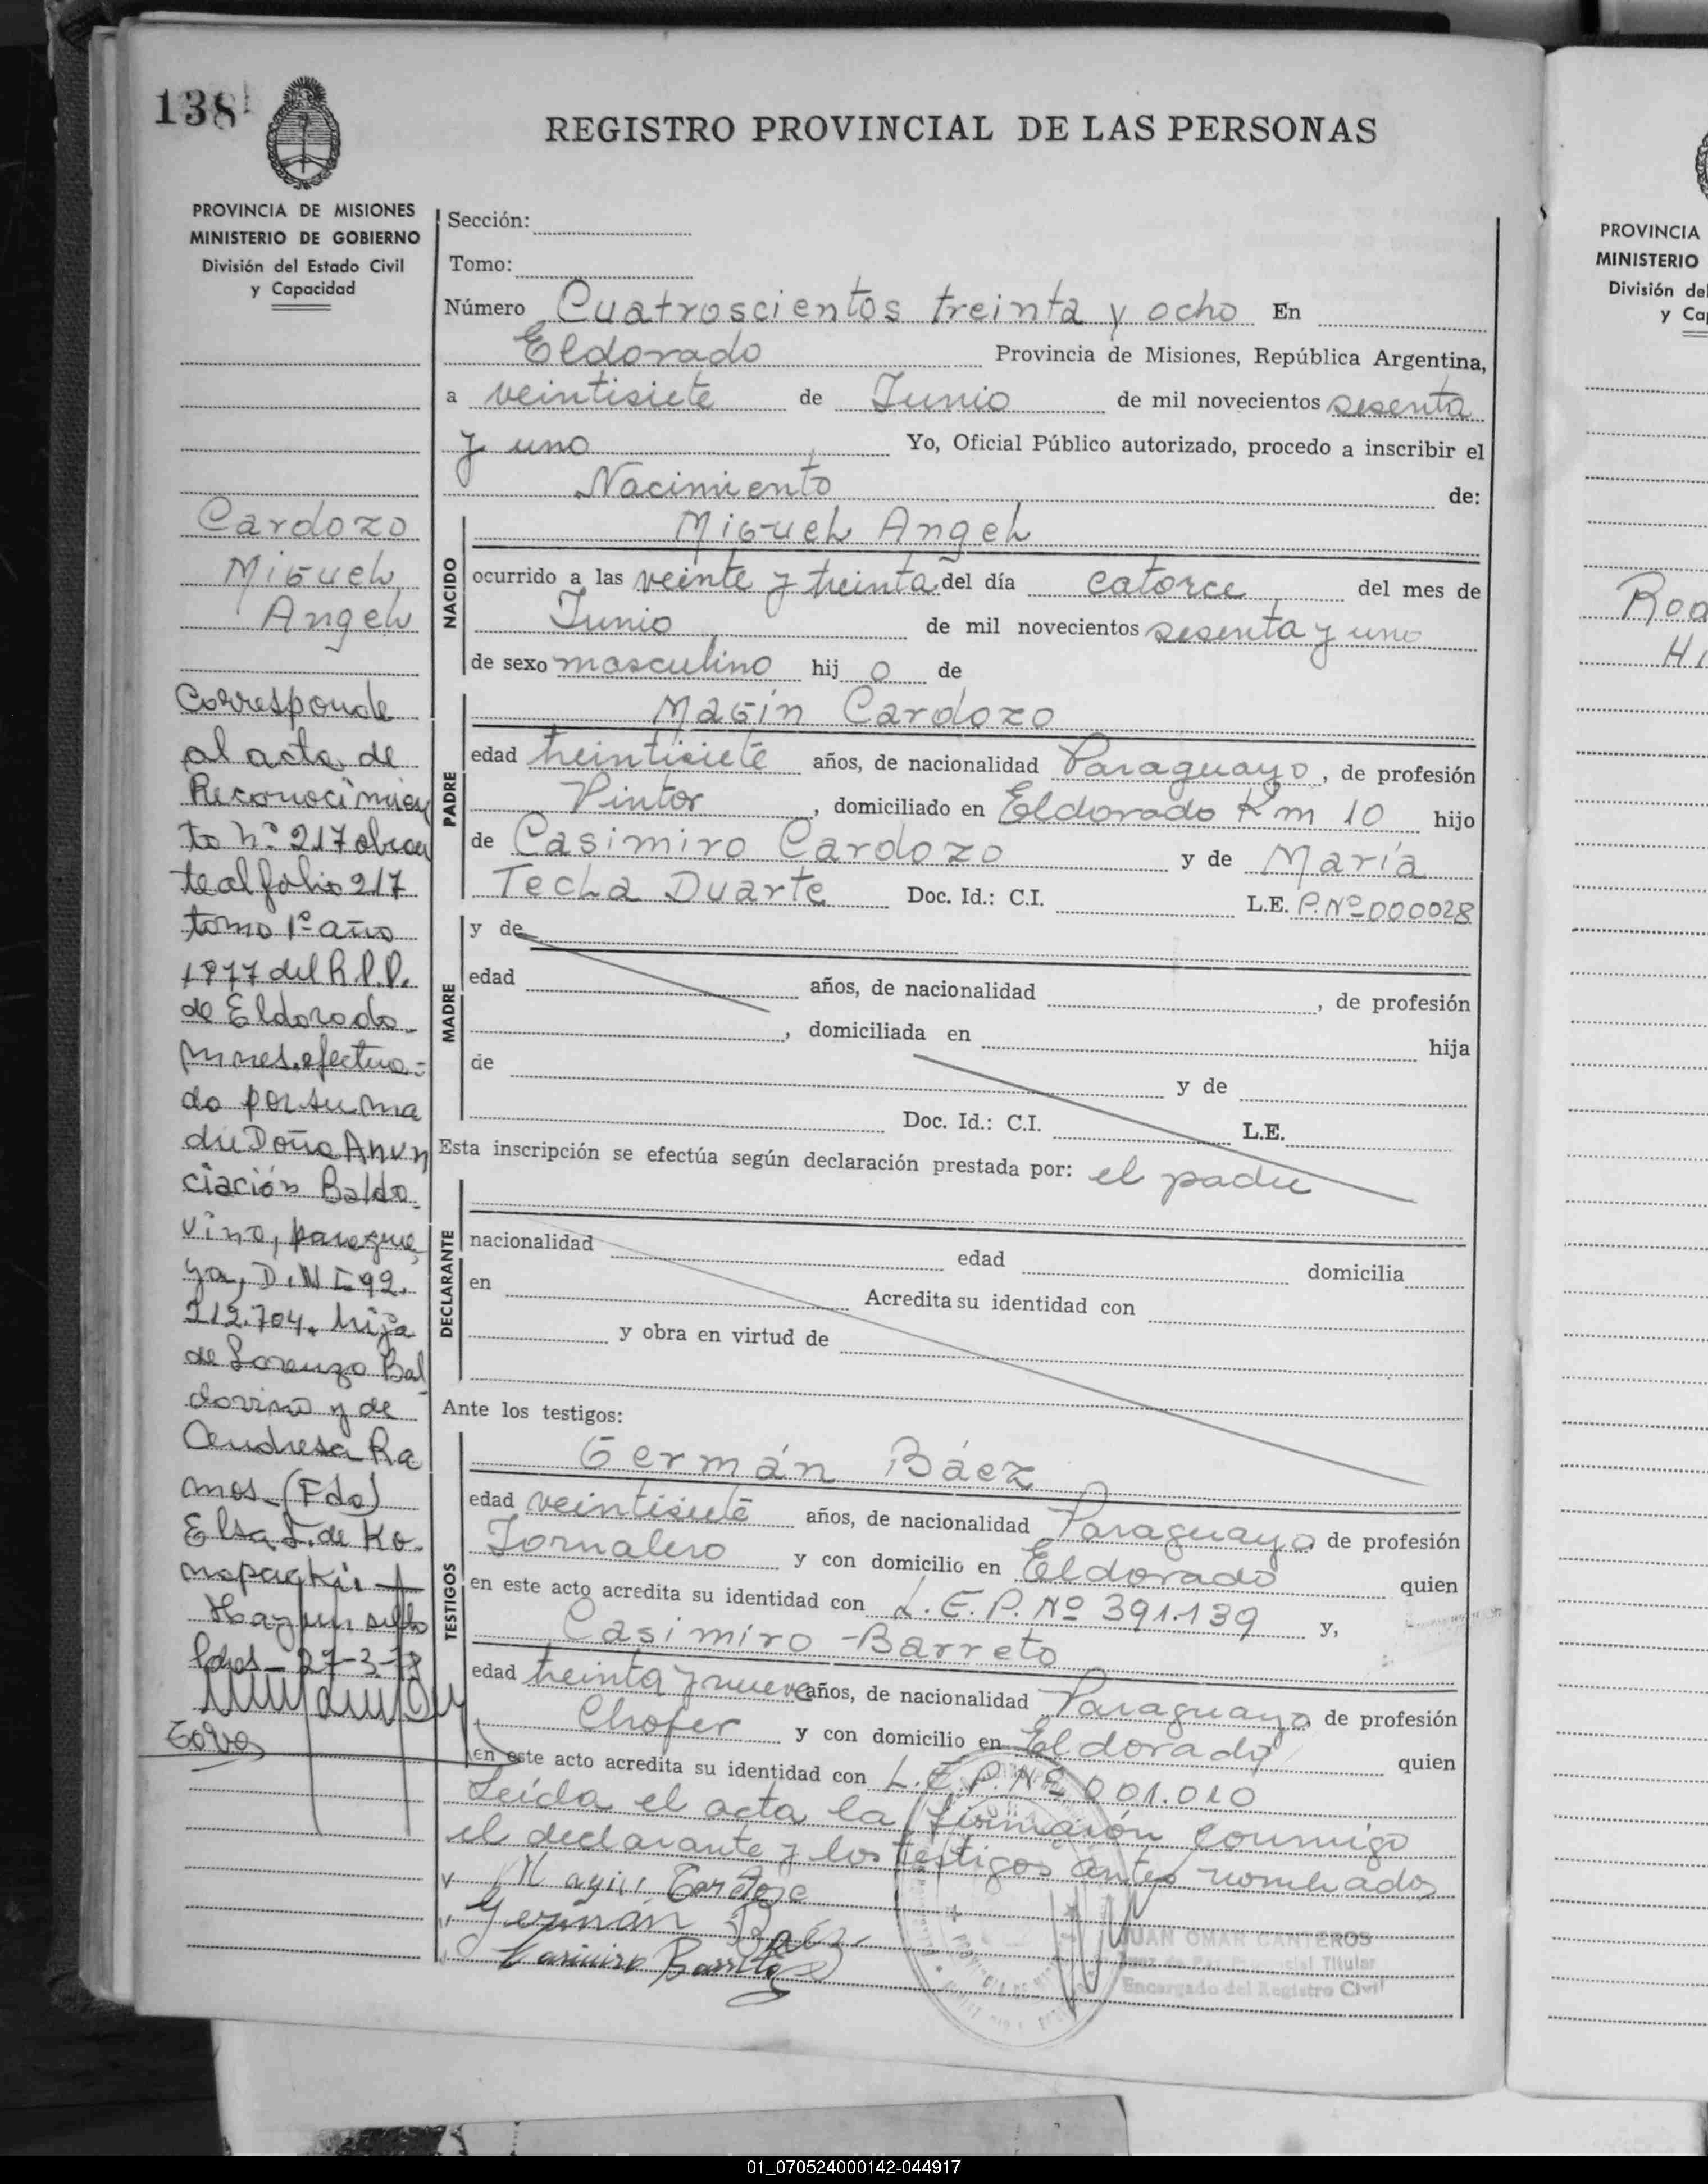 138
REGISTRO PROVINCIAL DE LAS PERSONAS
PROVINCIA DE MISIONES
MINISTERIO DE GOBIERNO
División del Estado Civil
y Capacidad
Cardozo
Miguel
Angel
Corresponde
al acta de
Reconocimien
to nº 217 obran
te al folio 217
tomo 1º año
1977 del R.P.P.
de Eldorado
Mnes. efectua=
do por su ma
dre Doña Anun
ciación Baldo
vino, paragua
ya, D.N.I 92.
212.704. hija
de Lorenzo Bal
dovino y de
Andresa Ra
mos. (Fdo)
Elsa de Ko-
27-3-78
Sección:
Tomo:
Número Cuatroscientos treinta y ocho En
Eldorado Provincia de Misiones, República Argentina,
a veintisiete de Junio de mil novecientos sesenta
y uno Yo, Oficial Público autorizado, procedo a inscribir el
Nacimiento de:
NACIDO
Miguel Angel
ocurrido a las veinte y treinta del día catorce del mes de
Junio de mil novecientos sesenta y uno
de sexo masculino hij o de
PADRE
Magín Cardozo
edad treintisiete años, de nacionalidad Paraguayo, de profesión
Pintor, domiciliado en Eldorado Km 10 hijo
de Casimiro Cardozo y de María
Tecla Duarte Doc. Id.: C.I. L.E. P.Nº000028
MADRE
y de
edad años, de nacionalidad , de profesión
, domiciliada en hija
de y de
Doc. Id.: C.I. L.E.
Esta inscripción se efectúa según declaración prestada por: el padre
DECLARANTE
nacionalidad edad domicilia
en Acredita su identidad con
y obra en virtud de
Ante los testigos:
TESTIGOS
Germán Báez
edad veintisiete años, de nacionalidad Paraguayo de profesión
Jornalero y con domicilio en Eldorado quien
en este acto acredita su identidad con L.E.P. Nº 391.139 y,
Casimiro Barreto
edad treinta y nueve años, de nacionalidad Paraguayo de profesión
Chofer y con domicilio en Eldorado quien
en este acto acredita su identidad con L.E.P. Nº 001.010
Leída el acta la firmarón conmigo
el declarante y los testigos antes nombrados
Magin Cardozo
Germán Baez
Casimiro Barreto
JUAN OMAR CANTEROS
Juez de Paz Provincial Titular
Encargado del Registro Civil
PROVINCIA
MINISTERIO
División de
y Ca
01_070524000142-044917